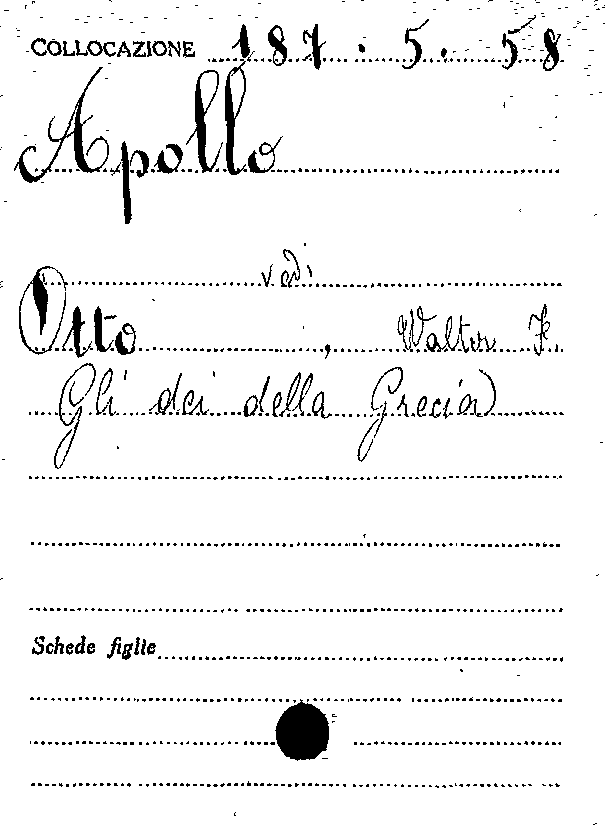 COLLOCAZIONE 187.5.58
Apollo
vedi
Otto, Walter F.
Gli dei della Grecia
Schede figlie